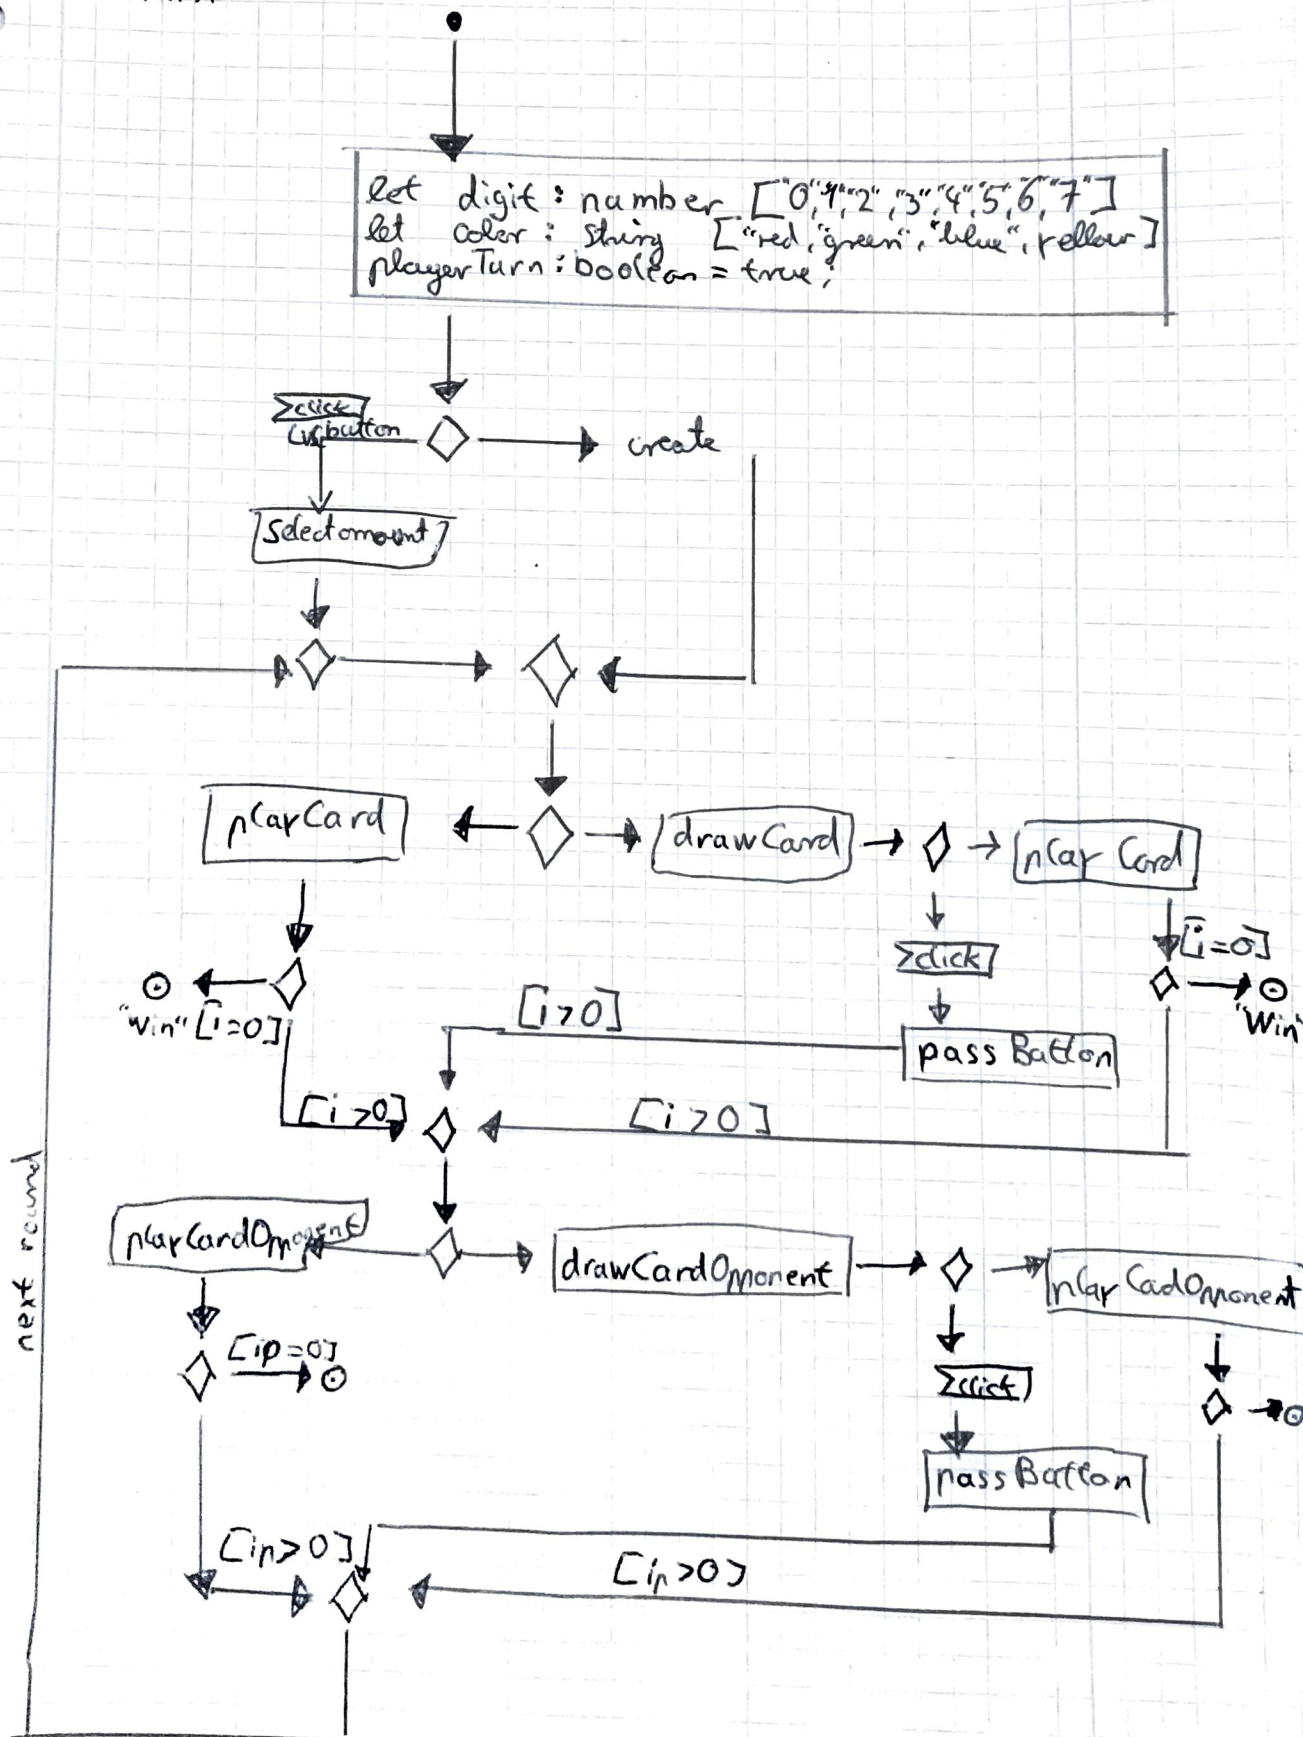 let digit : number ["0","1","2","3","4","5","6","7"]
let color : string ["red","green","blue",yellow]
playerTurn : boolean = true;
click
button
create
Selectamount
playCard
drawCard
playCard
click
[i=0]
"Win" [i=0]
"Win"
[i>0]
passButton
[i>0]
[i>0]
next round
playCardOpponent
drawCardOpponent
playCadOpponent
[ip=0]
click
passButton
[ip>0]
[ip>0]